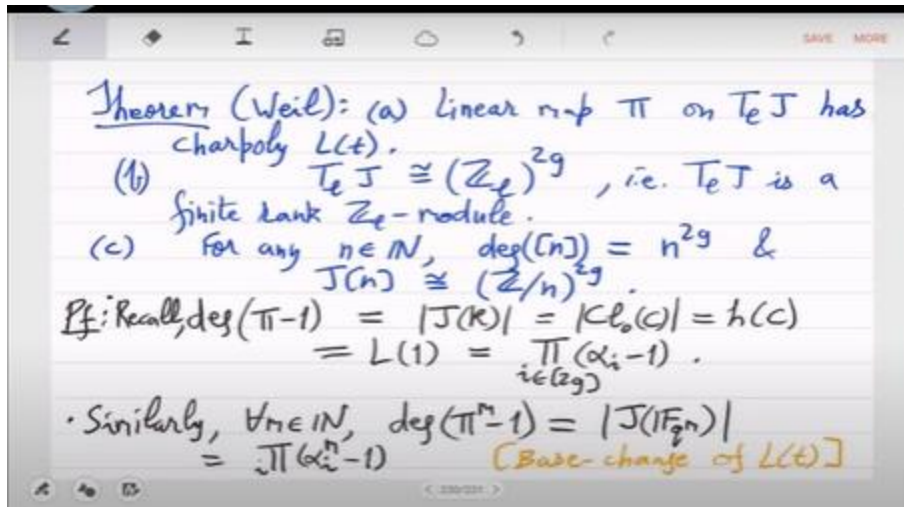 SAVE MORE
Theorem (Weil): (a) Linear map π on T_ℓ J has
charpoly L(t).
(b) T_ℓ J ≅ (ℤ_ℓ)^{2g}, i.e. T_ℓ J is a
finite rank ℤ_ℓ-module.
(c) For any n∈ℕ, deg([n]) = n^{2g} &
J[n] ≅ (ℤ/n)^{2g}.
Pf: Recall, deg(π-1) = |J(k)| = |Cl₀(C)| = h(C)
= L(1) = ∏_{i∈[2g]} (α_i - 1).
· Similarly, ∀n∈ℕ, deg(π^n - 1) = |J(𝔽_{q^n})|
= ∏_i (α_i^n - 1) [Base-change of L(t)]